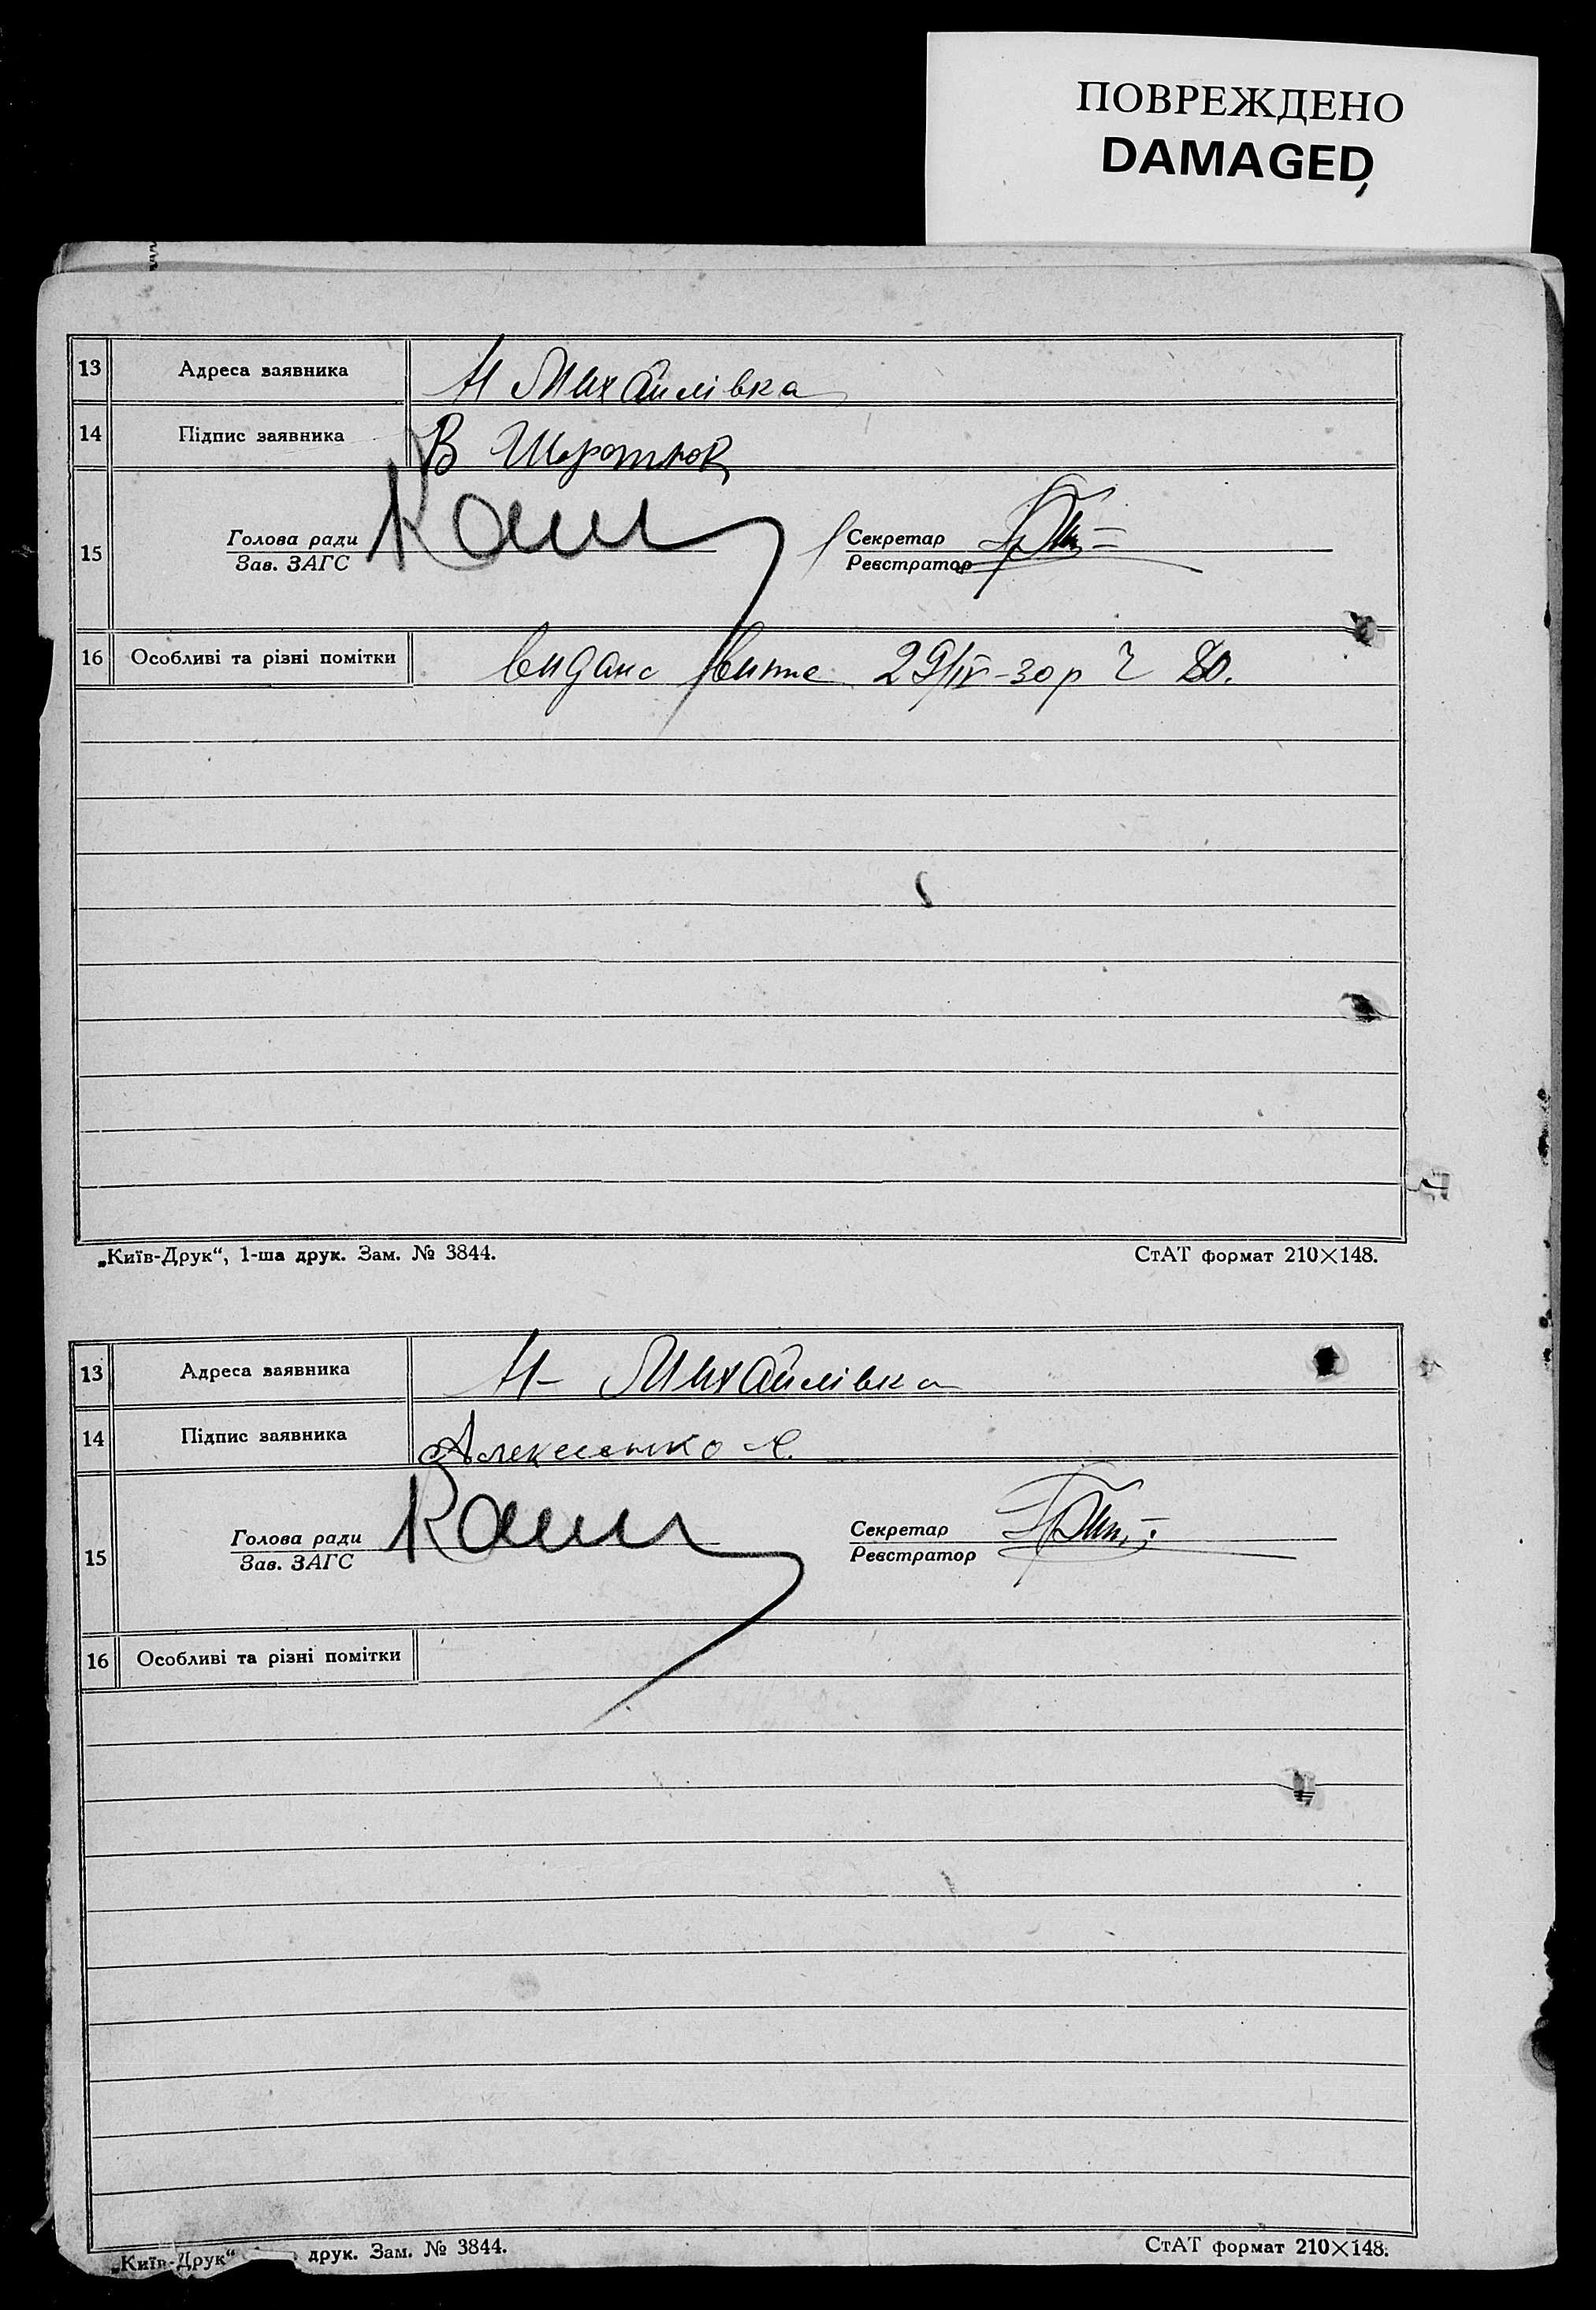 ПОВРЕЖДЕНО
DAMAGED
13 Адреса заявника Н Михайлівка
14 Підпис заявника В
15 Голова ради Секретар
Зав. ЗАГС Реєстратор
16 Особливі та різні помітки видано 29/IV-30 р Ч 80.
„Київ-Друк“, 1-ша друк. Зам. № 3844. СтАТ формат 210×148.
13 Адреса заявника Н- Михайлівка
14 Підпис заявника
15 Голова ради Секретар
Зав. ЗАГС Реєстратор
16 Особливі та різні помітки
„Київ-Друк“ друк. Зам. № 3844. СтАТ формат 210×148.